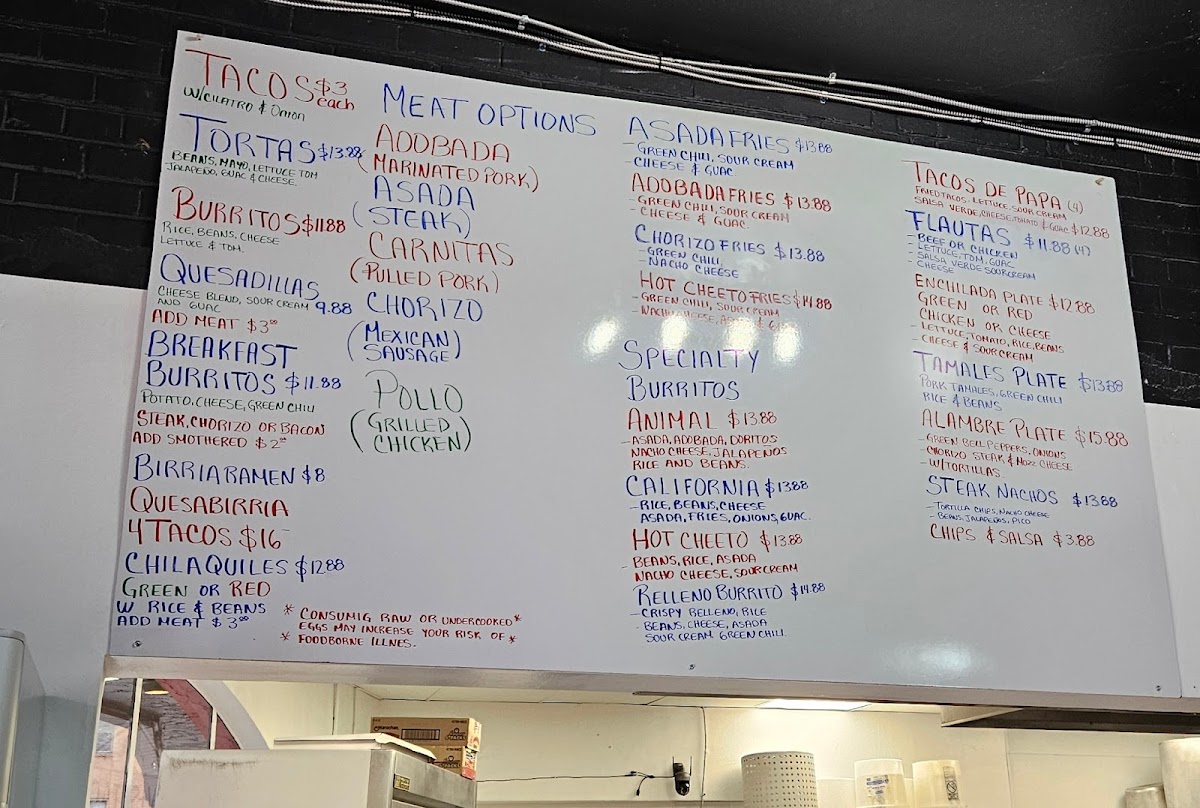 TACOS $3 each
W/CILATRO & ONION
TORTAS $13.88
BEANS, MAYO, LETTUCE TOM
JALAPEÑO, GUAC & CHEESE.
BURRITOS $11.88
RICE, BEANS, CHEESE
LETTUCE & TOM.
QUESADILLAS
CHEESE BLEND, SOUR CREAM 9.88
AND GUAC
ADD MEAT $3⁰⁰
BREAKFAST
BURRITOS $11.88
POTATO, CHEESE, GREEN CHILI
STEAK, CHORIZO OR BACON
ADD SMOTHERED $2⁰⁰
BIRRIA RAMEN $8
QUESABIRRIA
4 TACOS $16
CHILAQUILES $12.88
GREEN OR RED
W RICE & BEANS
ADD MEAT $3⁰⁰
* CONSUMIG RAW OR UNDERCOOKED *
EGGS MAY INCREASE YOUR RISK OF *
* FOODBORNE ILLNES.
MEAT OPTIONS
ADOBADA
(MARINATED PORK)
ASADA
(STEAK)
CARNITAS
(PULLED PORK)
CHORIZO
(MEXICAN
SAUSAGE)
POLLO
(GRILLED
CHICKEN)
ASADA FRIES $13.88
- GREEN CHILI, SOUR CREAM
- CHEESE & GUAC
ADOBADA FRIES $13.88
- GREEN CHILI, SOUR CREAM
- CHEESE & GUAC.
CHORIZO FRIES $13.88
- GREEN CHILI,
- NACHO CHEESE
HOT CHEETO FRIES $14.88
- GREEN CHILI, SOUR CREAM
- NACHO CHEESE,
SPECIALTY
BURRITOS
ANIMAL $13.88
- ASADA, ADOBADA, DORITOS
NACHO CHEESE, JALAPEÑOS
RICE AND BEANS.
CALIFORNIA $13.88
- RICE, BEANS, CHEESE
ASADA, FRIES, ONIONS, GUAC.
HOT CHEETO $13.88
BEANS, RICE, ASADA
- NACHO CHEESE, SOUR CREAM
RELLENO BURRITO $14.88
- CRISPY RELLENO, RICE
- BEANS, CHEESE, ASADA
SOUR CREAM GREEN CHILI.
TACOS DE PAPA (4)
FRIED TACOS, LETTUCE, SOUR CREAM
SALSA VERDE, CHEESE, TOMATO & GUAC $12.88
FLAUTAS $11.88 (4)
- BEEF OR CHICKEN
- LETTUCE, TOM, GUAC
- SALSA VERDE SOUR CREAM
- CHEESE
ENCHILADA PLATE $12.88
GREEN OR RED
CHICKEN OR CHEESE
- LETTUCE, TOMATO, RICE, BEANS
- CHEESE & SOUR CREAM
TAMALES PLATE $13.88
PORK TAMALES, GREEN CHILI
RICE & BEANS
ALAMBRE PLATE $15.88
- GREEN BELL PEPPERS, ONIONS
- CHORIZO STEAK & MOZZ CHEESE
- W/TORTILLAS
STEAK NACHOS $13.88
- TORTILLA CHIPS, NACHO CHEESE
- BEANS, JALAPEÑOS, PICO
CHIPS & SALSA $3.88